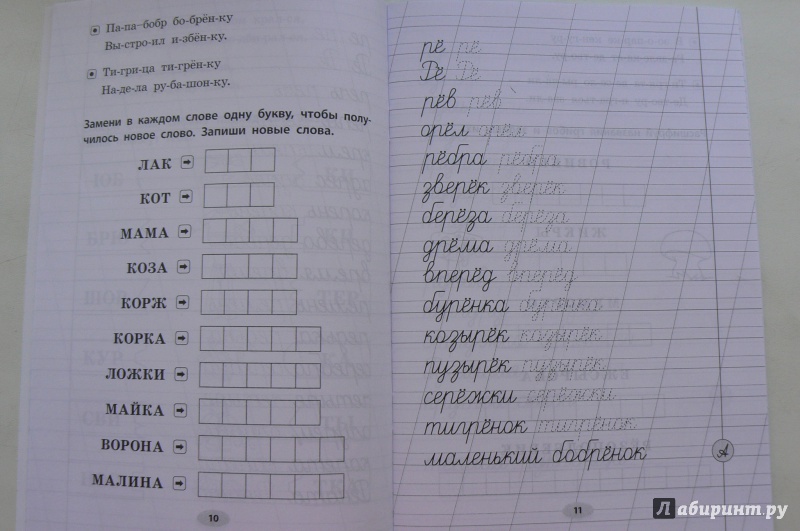 Па-па-бобр бо-брён-ку
Вы-стро-ил и-збён-ку.
Ти-гри-ца ти-грён-ку
На-де-ла ру-ба-шон-ку.
Замени в каждом слове одну букву, чтобы полу-
чилось новое слово. Запиши новые слова.
ЛАК
КОТ
МАМА
КОЗА
КОРЖ
КОРКА
ЛОЖКИ
МАЙКА
ВОРОНА
МАЛИНА
10
рё рё
Рё Рё
рёв рёв
орёл орёл
рёбра рёбра
зверёк зверёк
берёза берёза
дрёма дрёма
вперёд вперёд
бурёнка бурёнка
козырёк козырёк
пузырёк пузырёк
серёжки серёжки
тигрёнок тигрёнок
маленький бобрёнок
А
11
Лабиринт.ру